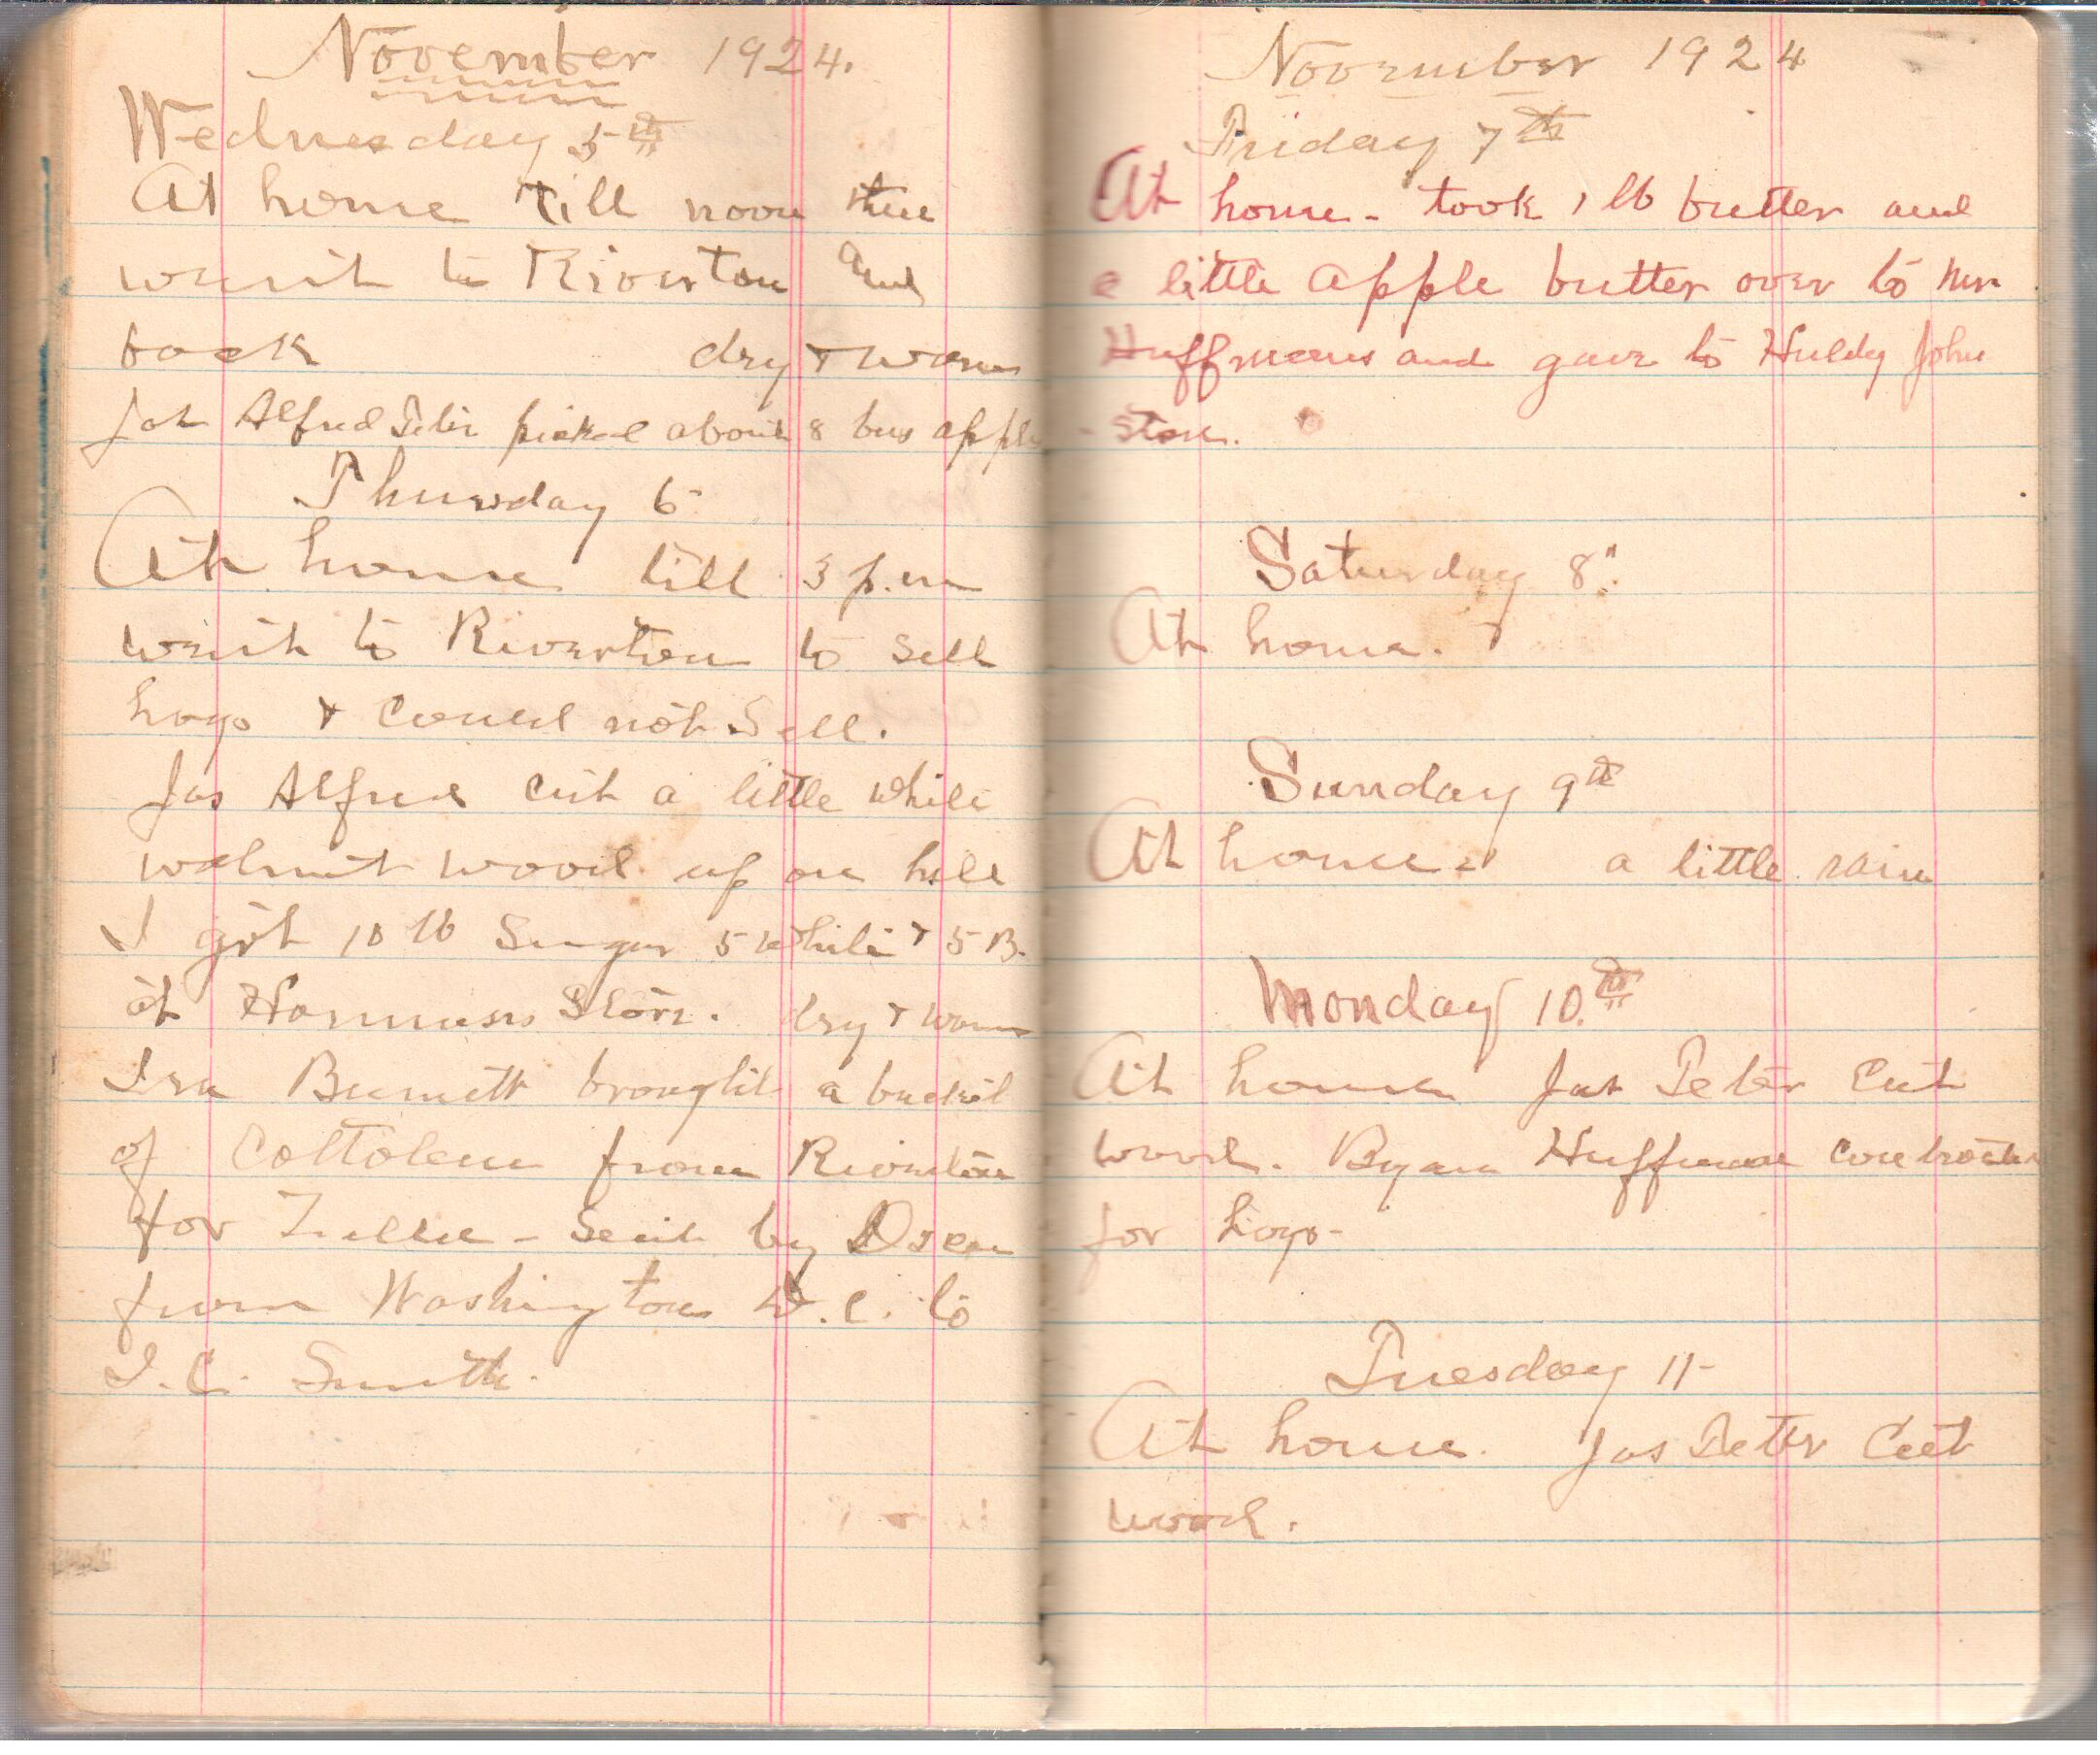 November 1924.
Wednesday 5th
At home till noon then
went to Riverton and
back dry & warm
Jas Alfred Peter picked about 8 bus apple
Thursday 6
At home till 3 p.m
went to Riverton to sell
hogs & could not sell.
Jas Alfred cut a little while
walnut wood up on hill
I got 10 lb Sugar 5 white & 5 B.
at Store. dry & warm
Ira Burnett brought a bucket
of Cottolene from Riverton
for - sent by
from Washington D.C. to
I.C. Smith.
November 1924
Friday 7th
At home - took 1 lb butter and
a little apple butter over to Mr
Huffmans and gave to Huldy John
-ston.
Saturday 8"
At home.
Sunday 9th
At home - a little rain
Monday 10.th
At home Jas Peter Cut
wood. Huffman
for hogs-
Tuesday 11-
At home. Jas Peter Cut
wood.